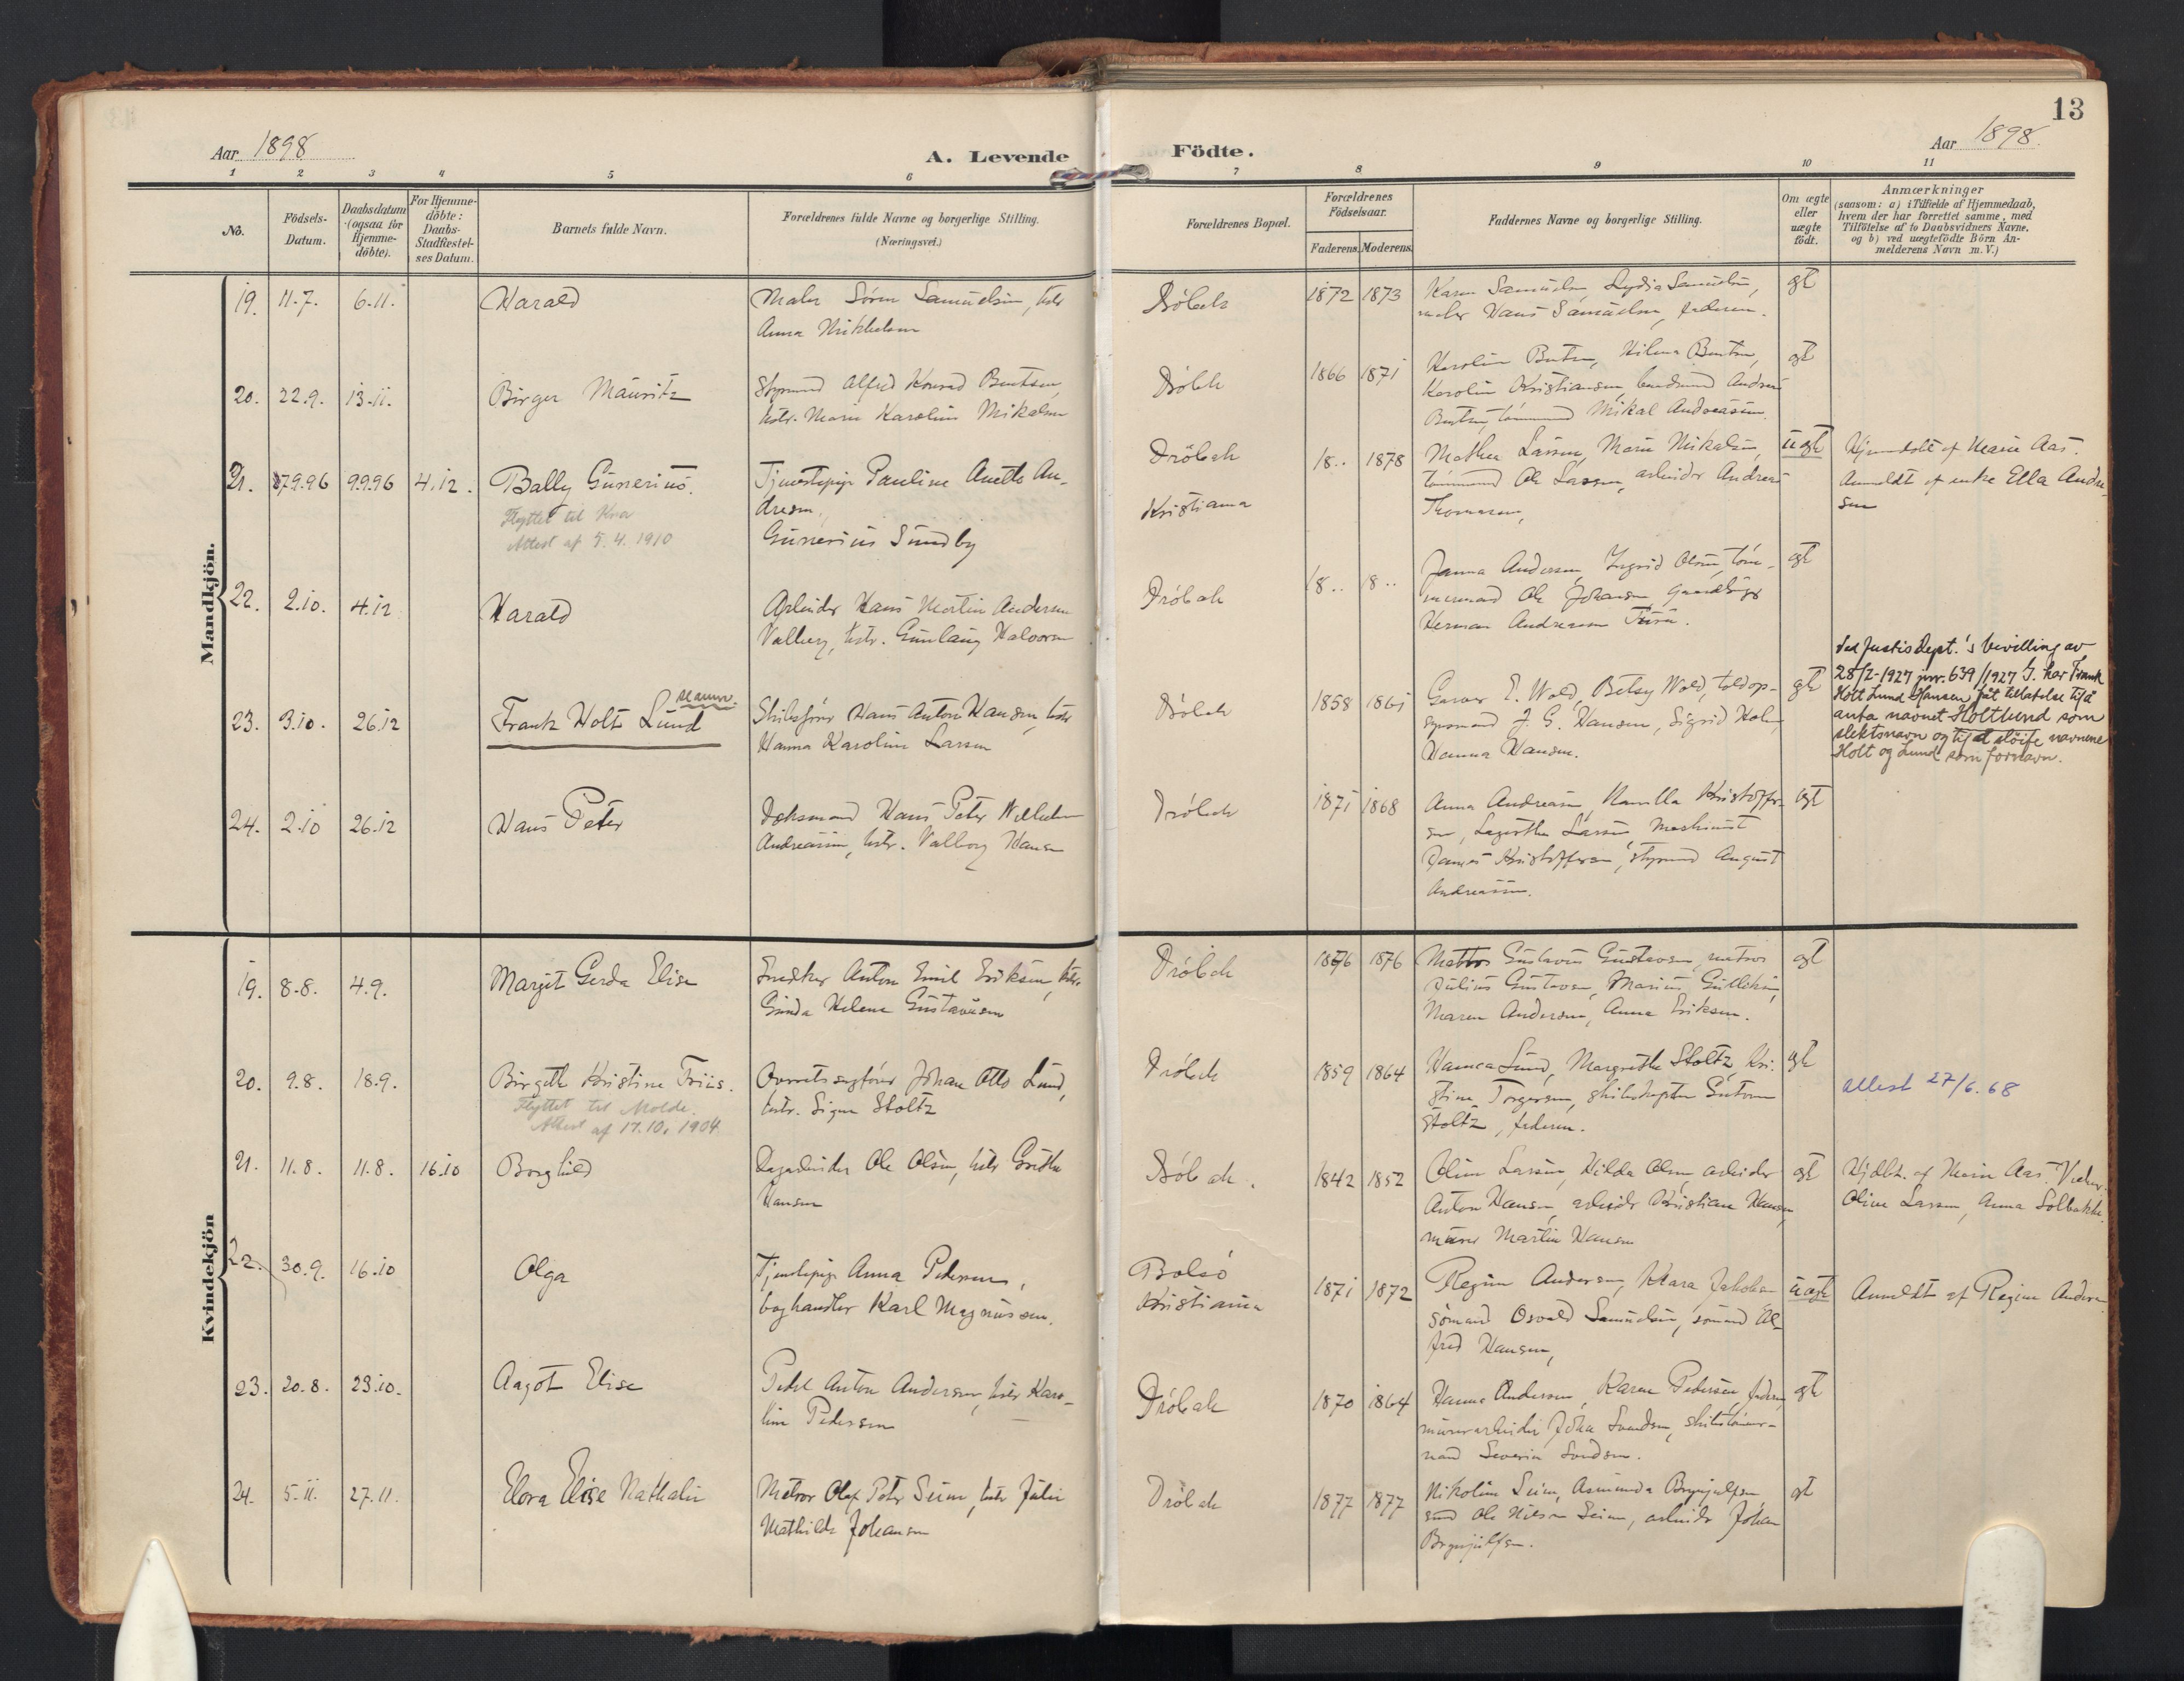 13
Aar 1898
A. Levende Födte.
Aar 1898.
1 2 3 4 5 6 7 8 9 10 11
No.
Födsels-Datum.
Daabsdatum (ogsaa for Hjemme-döbte).
For Hjemme-döbte: Daabs-Stadfæstel-ses Datum.
Barnets fulde Navn.
Forældrenes fulde Navne og borgerlige Stilling.
(Næringsvei.)
Forældrenes Bopæl.
Forældrenes Födselsaar.
Faderens. Moderens.
Faddernes Navne og borgerlige Stilling.
Om ægte eller uægte födt.
Anmærkninger
(saasom: a) i Tilfælde af Hjemmedaab,
hvem der har forrettet samme, med
Tilföielse af to Daabsvidners Navne,
og b) ved uægtefödte Börn An-
melderens Navn m. V.)
Mandkjön.
19. 11.7. 6.11. Harald
Maler Sören Samuelsen, hstr
Anna Mikkelsen
Dröbak 1872 1873
Karen Samuelsen, Lydia Samuelsen,
maler Hans Samuelsen, faderen.
gt
20. 22.9. 13.11. Birger Mauritz
Styrmand Alfred Konrad Bentsen,
hstr. Marie Karoline Mikalsen
Dröbak 1866 1871
Karoline Bentsen, Hilma Bentsen,
Karoline Kristiansen, Andreas
Bentsen, tömmermand Mikal Andreassen.
gt
21. 7.9.96 9.9.96 4.12. Bally Gunerius.
Flyttet til Kra
Attest af 5.4.1910
Tjenestepige Pauline Anette An-
dresen,
Gunerius Sundby
Dröbak
Kristiania
18.. 1878
Mathea Larsen, Marie Mikalsen,
tömmermand Ole Larsen, arbeider Andreas
Thomasen,
uægte
Hjemmedöbt af Marie Aas.
Anmeldt af enke Ella Andre-
sen
22. 2.10. 4.12 Harald
Arbeider Hans Martin Andersen
Valberg, hstr. Gunlaug Halvorsen
Dröbak 18.. 18..
Janna Andersen, Ingrid Olsen, töm-
mermand Ole Johansen
Herman Andreasen
gt
23. 3.10. 26.12 Frank Holt Lund
Skibsförer Hans Anton Hansen, hstr
Hanna Karoline Larsen
Dröbak 1858 1861
E. Wold, Betsy Wold, toldop-
synsmand J. G. Hansen, Sigrid Holm,
Hanna Hansen.
gt
Ved Justisdept.'s bevilling av
28/2-1927 jnr. 639/1927 J. har Frank
Holt Lund Hansen fåt tillatelse til å
anta navnet Holtlund som
slektsnavn og til at slöife navnene
Holt og Lund som fornavn.
24. 2.10 26.12 Hans Peter
Hans Peter Wilhelm
Andreassen, hstr. Valborg Hansen
Dröbak 1871 1868
Anna Andreasen, Kamilla Kristoffer-
sen, Lagertha Larsen, Maskinist
Kristoffersen, styrmand August
Andreassen.
gt
Kvindekjön
19. 8.8. 4.9. Margit Gerda Elise
Snedker Anton Emil Eriksen, hstr.
Ginda Helene Gustavsen
Dröbak 1876 1876
Matros Gustavsen, matros
Julius Gustavsen, Marius Gulliksen,
Maren Andersen, Anna Eriksen.
gt
20. 9.8. 18.9. Birgith Kristine Friis.
Flyttet til Molde.
Attest af 17.10.1904.
Overretssagförer Johan Otto Lund,
hstr. Signe Stoltz
Dröbak 1859 1864
Lund, Margrethe Stoltz, Kri-
stine Torgersen, skibskaptein
Stoltz, faderen.
gt
attest 27/6.68
21. 11.8. 11.8. 16.10 Borghild
Ole Olsen, hstr Grethe
Hansen
Dröbak. 1842 1852
Oline Larsen, Hilda Olsen, arbeider
Anton Hansen, arbeider Kristian Hansen,
murer Martin Hansen
gt
Hjdöbt. af Marie Aas.
Oline Larsen, Anna Solbakke.
22. 30.9. 16.10 Olga
Tjenestepige Anna Pedersen,
boghandler Karl Magnussen.
Bolsö
Kristiania
1871 1872
Regine Andersen, Klara Jakobsen
sömand Osvald Samuelsen, sömand Al-
fred Hansen,
uægte
Anmeldt af Regine Andersen
23. 20.8. 23.10. Aagot Elise
Anton Andersen, hstr Karo-
line Pedersen
Dröbak 1870 1864
Hanna Andersen, Karen Pedersen, faderen
murerarbeider Johan Svendsen, skibstömmer-
mand Severin Svendsen.
gt
24. 5.11. 27.11. Elora Elise Nathalie
Matros Olaf Peter Seim, hstr Julie
Mathilde Johansen
Dröbak 1877 1877
Nikoline Seim, Asminda Brynjulfsen
Ole Nilsen Seim, arbeider Johan
Brynjulfsen.
gt